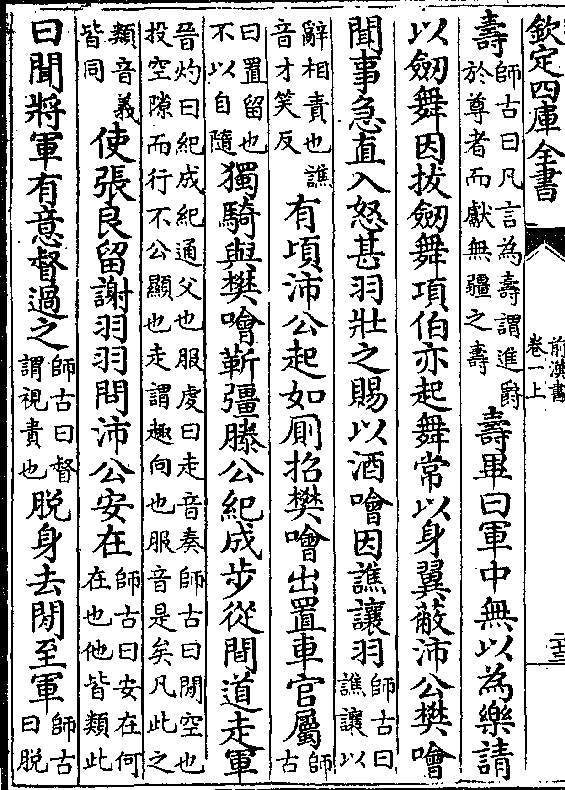 欽定四庫全書
前漢書
卷一上
二十三
壽師古曰凡言為壽謂進爵於尊者而獻無疆之壽壽畢曰軍中無以為樂請
以劒舞因拔劒舞項伯亦起舞常以身翼蔽沛公樊噲
聞事急直入怒甚羽壯之賜以酒噲因譙讓羽師古曰譙讓以
辭相責也譙音才笑反有頃沛公起如厠招樊噲出置車官屬師古
曰置留也不以自隨獨騎與樊噲靳彊滕公紀成步從間道走軍
晉灼曰紀成紀通父也服虔曰走音奏師古曰閒空也投空隙而行不公顯也走謂趣向也服音是矣凡此之
類音義皆同使張良留謝羽羽問沛公安在師古曰安在何在也他皆類此
曰聞將軍有意督過之師古曰督謂視責也脱身去閒至軍師古曰脱